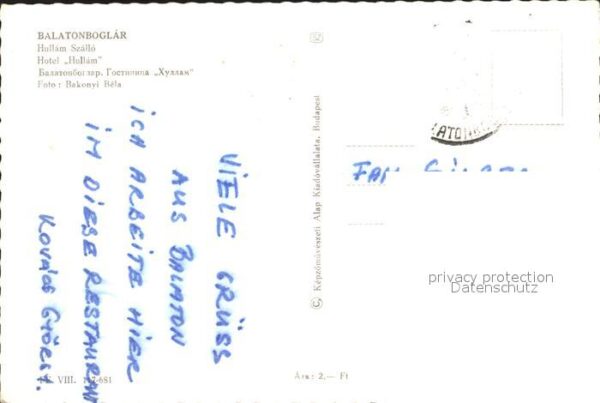 BALATONBOGLÁR
Hullám Szálló
Hotel „Hullám"
Балатонбоглар. Гостиница „Хуллам"
Foto: Bakonyi Béla
VIELE GRÜSS
AUS BALATON
ICH ARBEITE HIER
IM DIESE RESTAURANT
KOVÁCS GYÖRGY.
VIII.
© Képzőművészeti Alap Kiadóvállalata, Budapest
Ára: 2,— Ft
FAM
privacy protection
Datenschutz